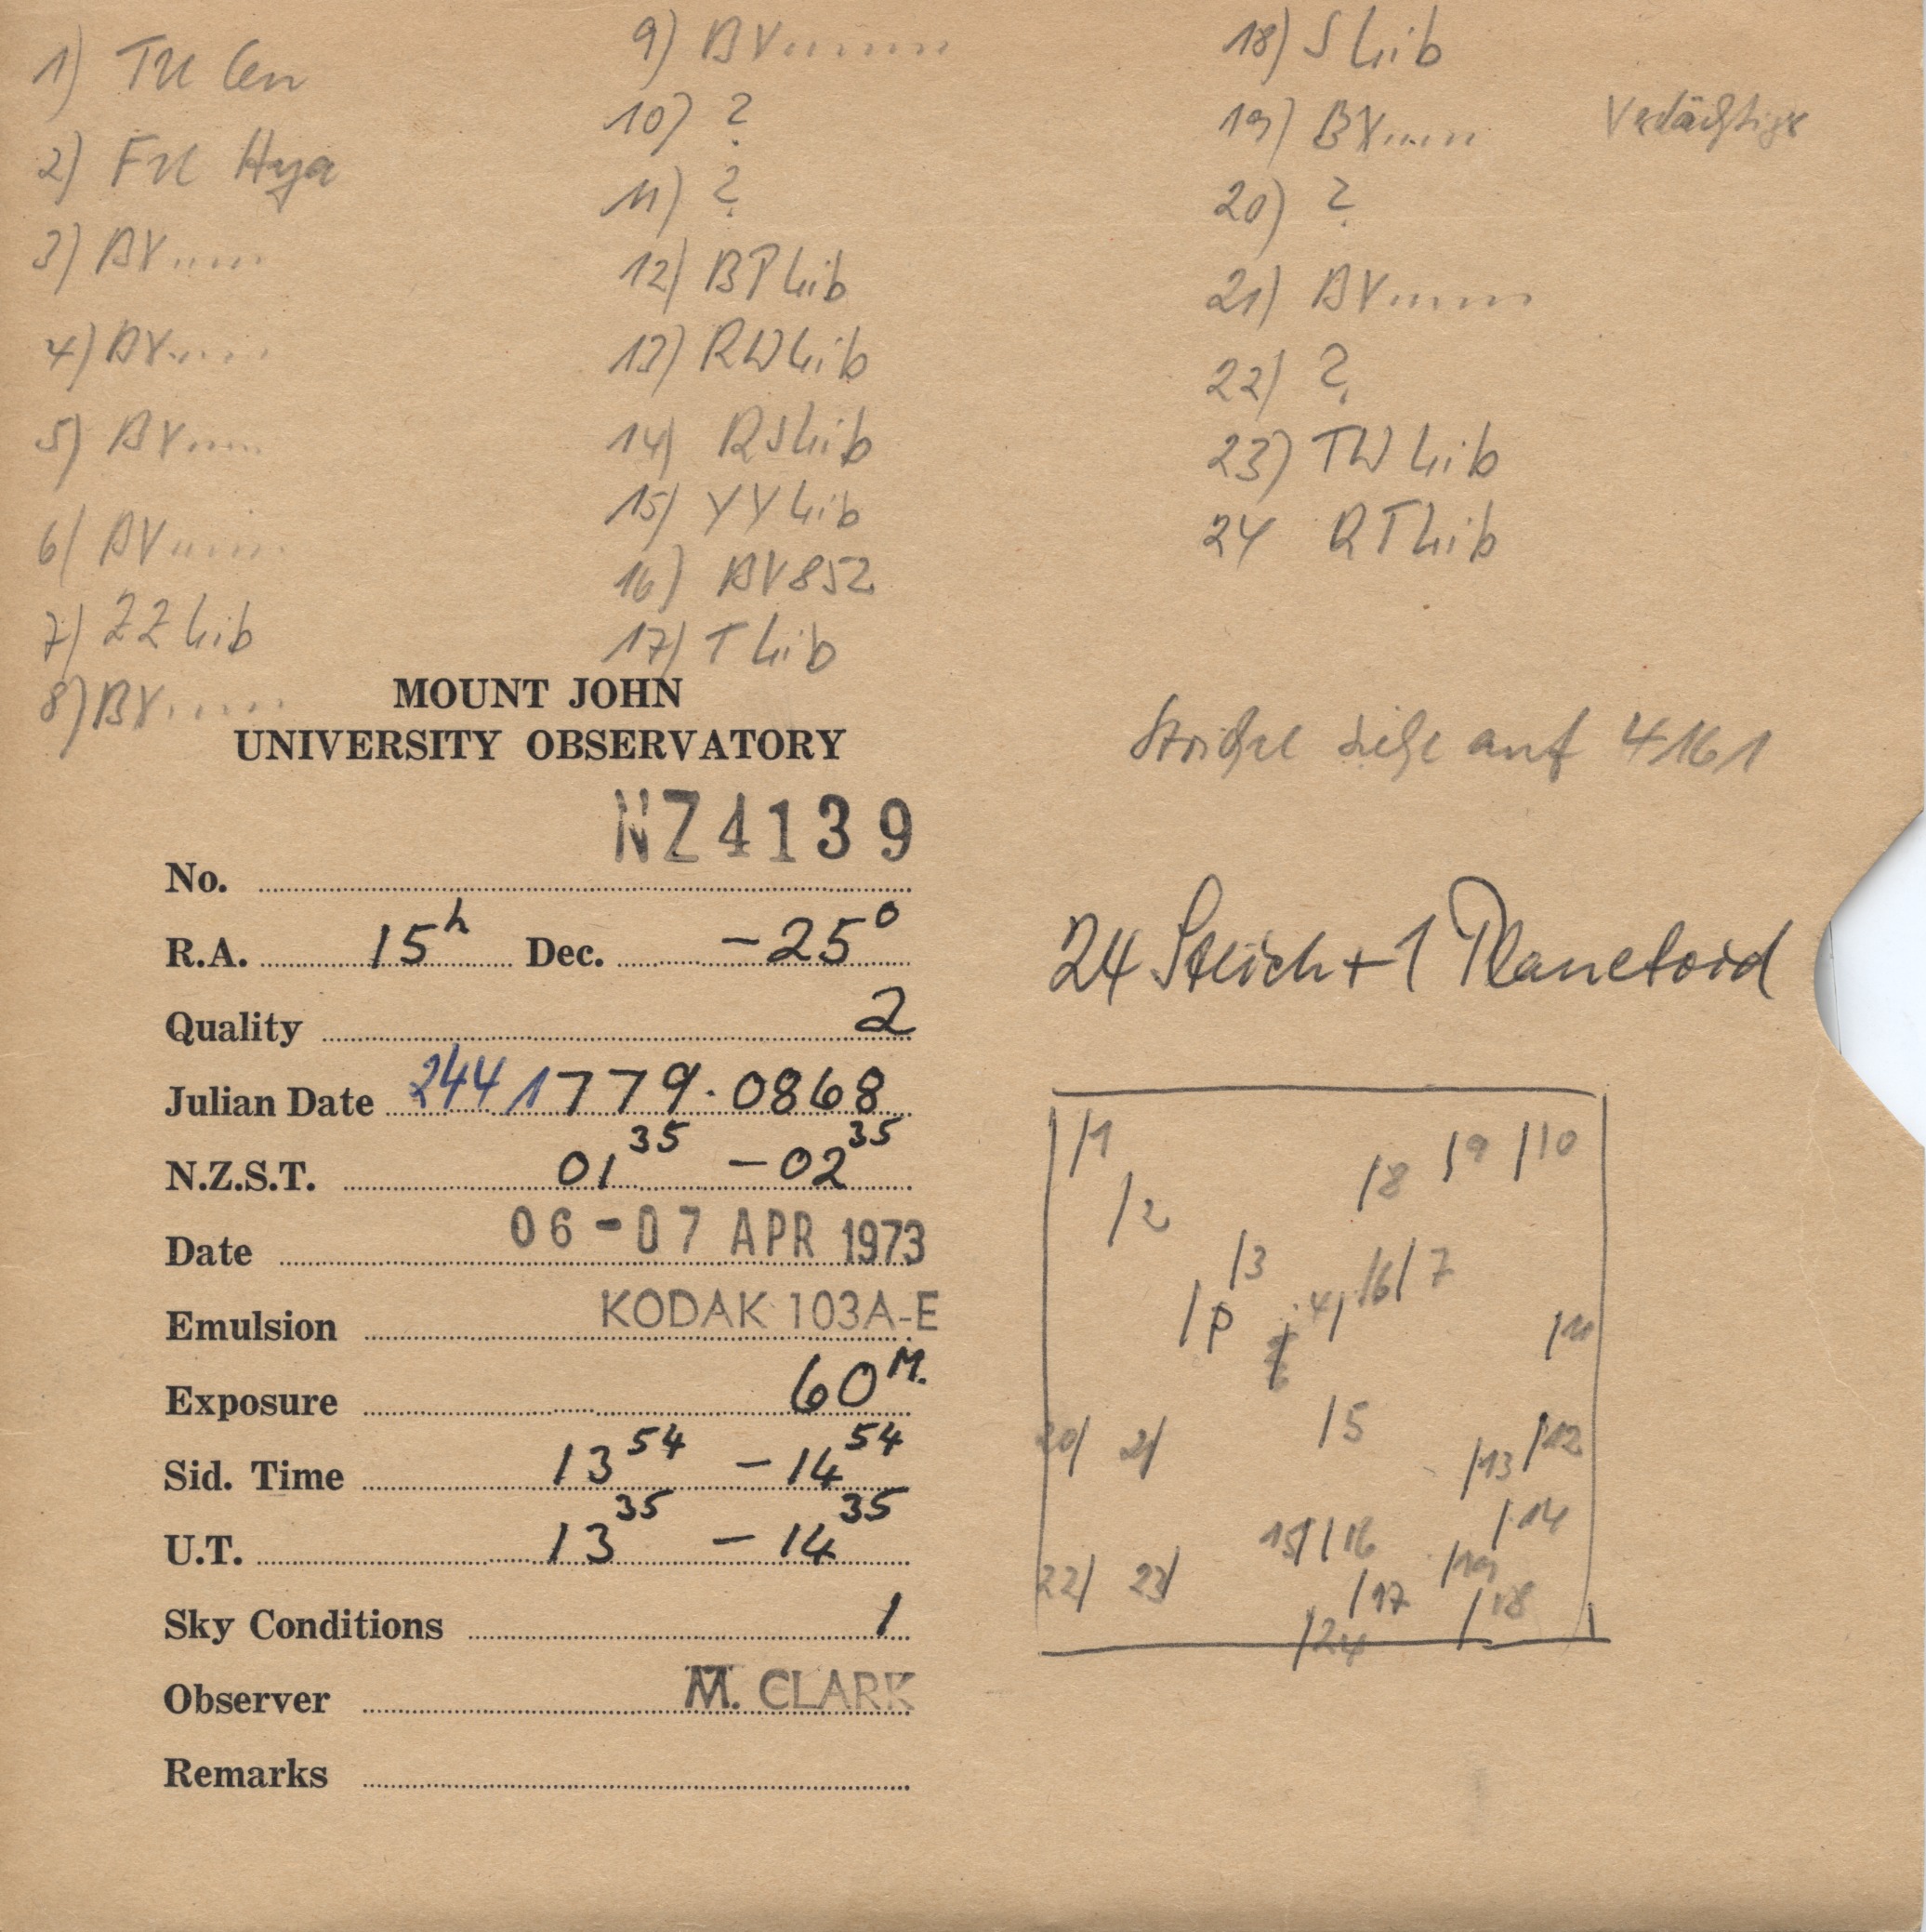 1) TU Cen
2) FU Hya
3) BV.....
4) BV.....
5) BV.....
6) BV.....
7) ZZ Lib
8) BV.....
9) BV.......
10) ?
11) ?
12) BP Lib
13) RW Lib
14) RS Lib
15) YY Lib
16) BV 852
17) T Lib
18) S Lib
19) BV.....
20) ?
21) BV......
22) ?
23) TW Lib
24 RT Lib
Verdächtige
MOUNT JOHN
UNIVERSITY OBSERVATORY
Striche siehe auf 4161
No. NZ4139
R.A. 15h Dec. -25°
24 Strich + 1 Planetoid
Quality 2
Julian Date 2441779.0868
N.Z.S.T. 01 35 - 02 35
Date 06-07 APR 1973
Emulsion KODAK 103A-E
Exposure 60 M.
Sid. Time 13 54 - 14 54
U.T. 13 35 - 14 35
Sky Conditions 1
Observer M. CLARK
Remarks
/1
/8 /9 /10
/2
/3 /6 /7
/P 4/ /11
/5
20/ 21/ /13 /12
/14
15/ /16 /19
22/ 23/ /17 /18
/24